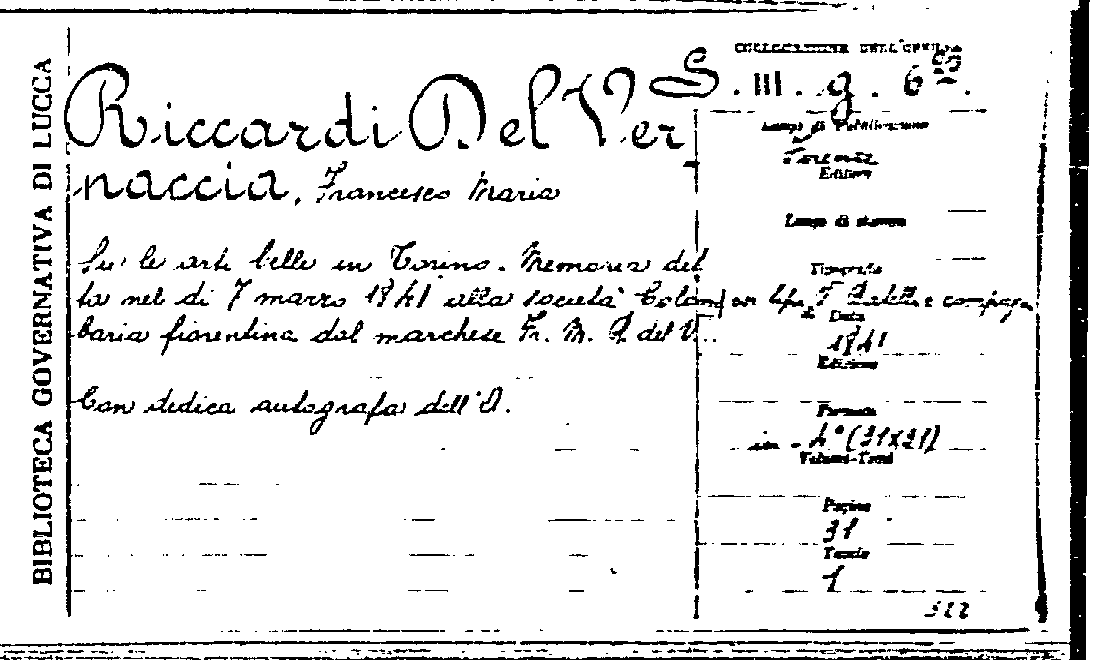 BIBLIOTECA GOVERNATIVA DI LUCCA
COLLOCAZIONE DELL'OPERA
S. III. g. 6
Riccardi Del Ver-
naccia, Francesco Maria
Su le arti belle in Torino. Memoria det
ta nel di 7 marzo 1841 alla società Colom
baria fiorentina dal marchese Fr. M. R. del V...
Con dedica autografa dell'A.
Luogo di Pubblicazione
Firenze
Editore
Luogo di stampa
Tipografia
tip. F. e compagni
Data
1841
Edizione
Formato
in - 4° (31x21)
Volumi-Tomi
Pagine
31
Tavole
1
322